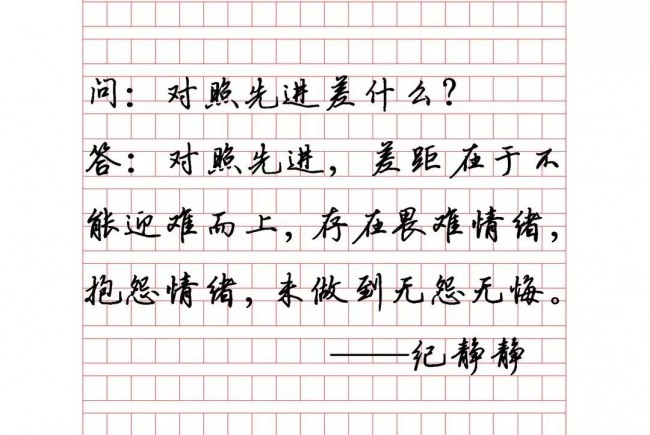 问：对照先进差什么？
答：对照先进，差距在于不
能迎难而上，存在畏难情绪，
抱怨情绪，未做到无怨无悔。
——纪静静